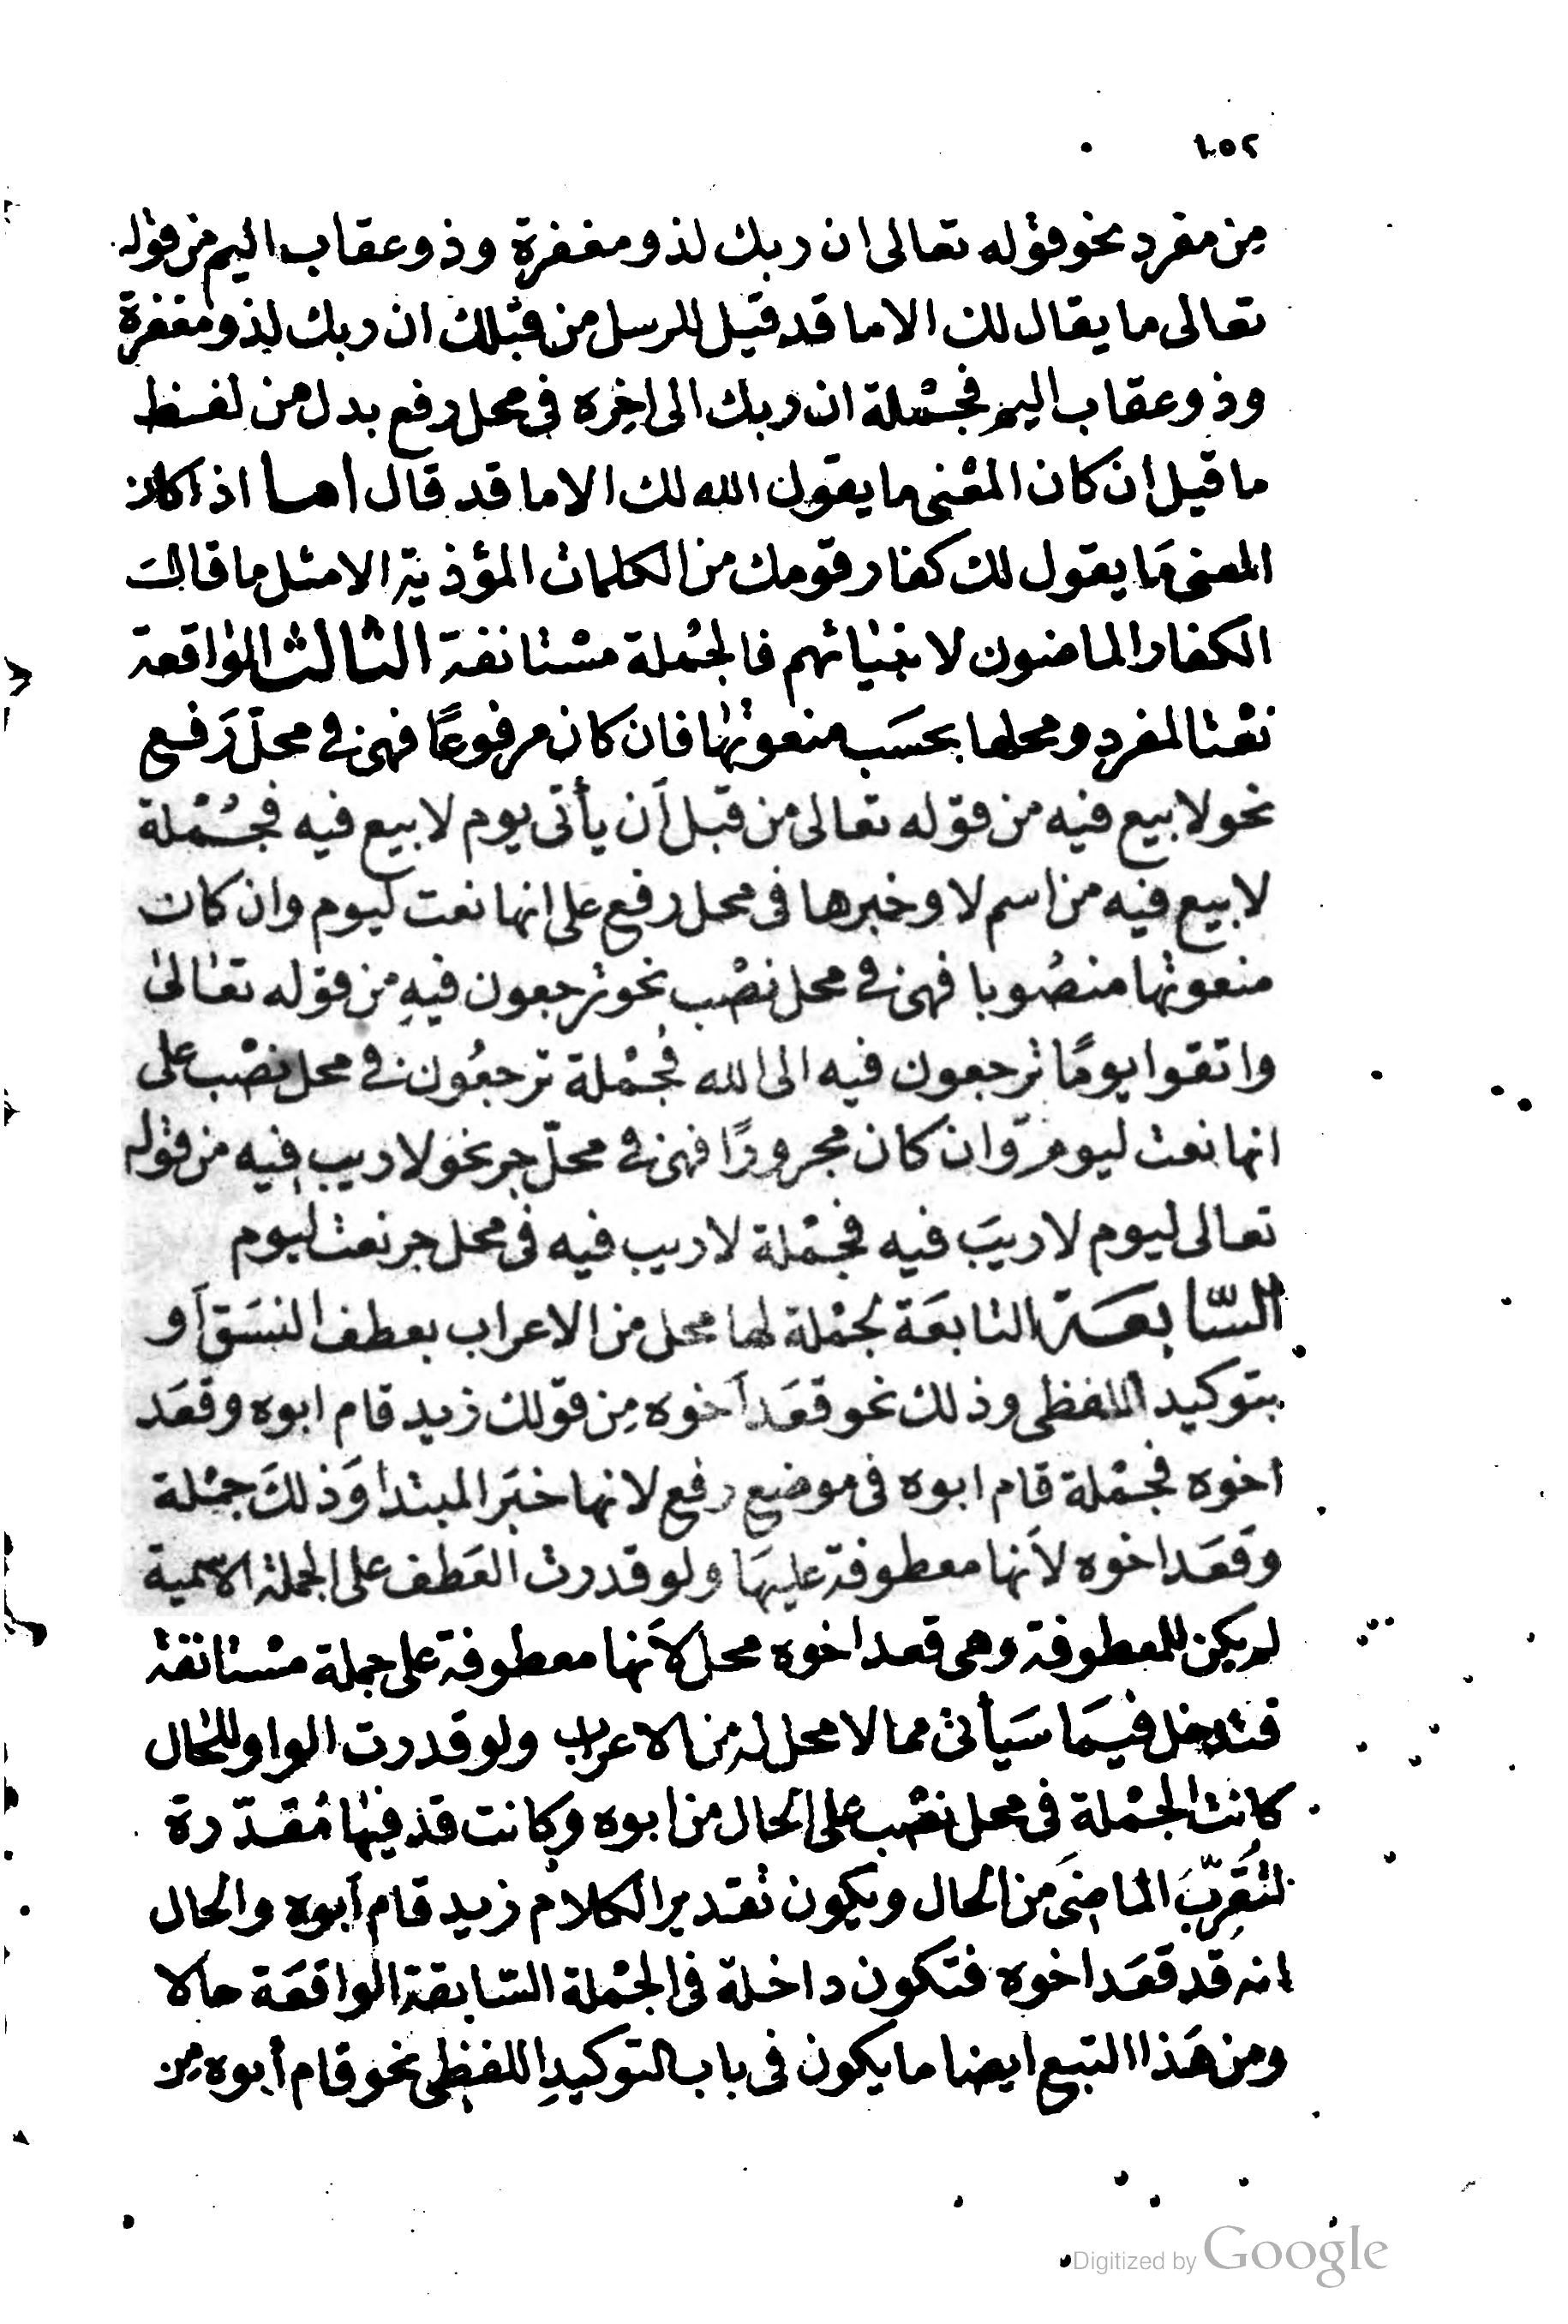 ١٥٢
مِن مفرد نحو قوله تعالى ان ربك لذو مغفرة وذو عقاب اليم من قوله
تعالى ما يقال لك الا ما قد قيل للرسل من قبلك ان ربك لذو مغفرة
وذو عقاب اليم فجمْلة ان ربك الى اخِره فى محل رفع بدل من لفظ
ما قيل ان كان المعْنى ما يقول الله لك الا ما قد قال اما اذا كان
المعنى مَا يقول لك كفار قومك من الكلمات المؤذية الا مثل ما قالت
الكفار الماضون لانبيائهم فالجمْلة مسْتانفة الثالث الواقعة
نعْتا لمفرد ومحلها بحسَب منعوتها فان كان مرفوعًا فهى فى محلّ رَفع
نحو لا بيع فيه من قوله تعالى من قبل أن يأتى يوم لا بيع فيه فجُمْلة
لا بيع فيه من اسم لا وخبرها فى محل رفع على انها نعت ليوم وان كان
منعوتها منصُوبا فهى فى محل نصْب نحو ترجعون فيهِ من قوله تعالى
واتقوا يومًا ترجعون فيه الى الله فجُمْلة ترجعُون فى محل نصْب على
انها نعت ليوم وان كان مجرورًا فهى فى محلّ جر نحو لا ريب فيه من قوله
تعالى ليوم لا ريبَ فيه فجمْلة لا ريب فيه فى محل جر نعت ليوم
السّابعة التابعَة لجمْلة لها محل من الاعراب بعطف النسَق أو
بتوكيد اللفظى وذلك نحو قعَد أخوه مِن قولك زيد قام ابوه وقعَد
اخوه فجمْلة قام ابوه فى موضع رفع لانها خبَر المبتدا وَذلكَ جمْلة
وقَعَد اخوه لأنها معطوفة عليهَا ولو قدرت العَطف على الجملة الاسمية
لم يكن للمعطوفة وهى قعد اخوه محل لأنها معطوفة على جملة مسْتانفة
فتدخل فيمَا سَيأتى مما لا محل له من الاعراب ولو قدرت الواو للحال
كانت الجمْلة فى محل نصْب على الحال من ابوه وكانت قد فيها مُقدّرة
لتُقَرِّبَ الماضىَ من الحال ويكون تقدير الكلام زيد قام أبوه والحال
انه قد قعَد اخوه فتكون داخلة فى الجمْلة السّابقة الواقعَة حالا
ومن هَذا التبع ايضا ما يكون فى باب التوكيدِ اللفظى نحو قام أبوه مِن
Digitized by Google